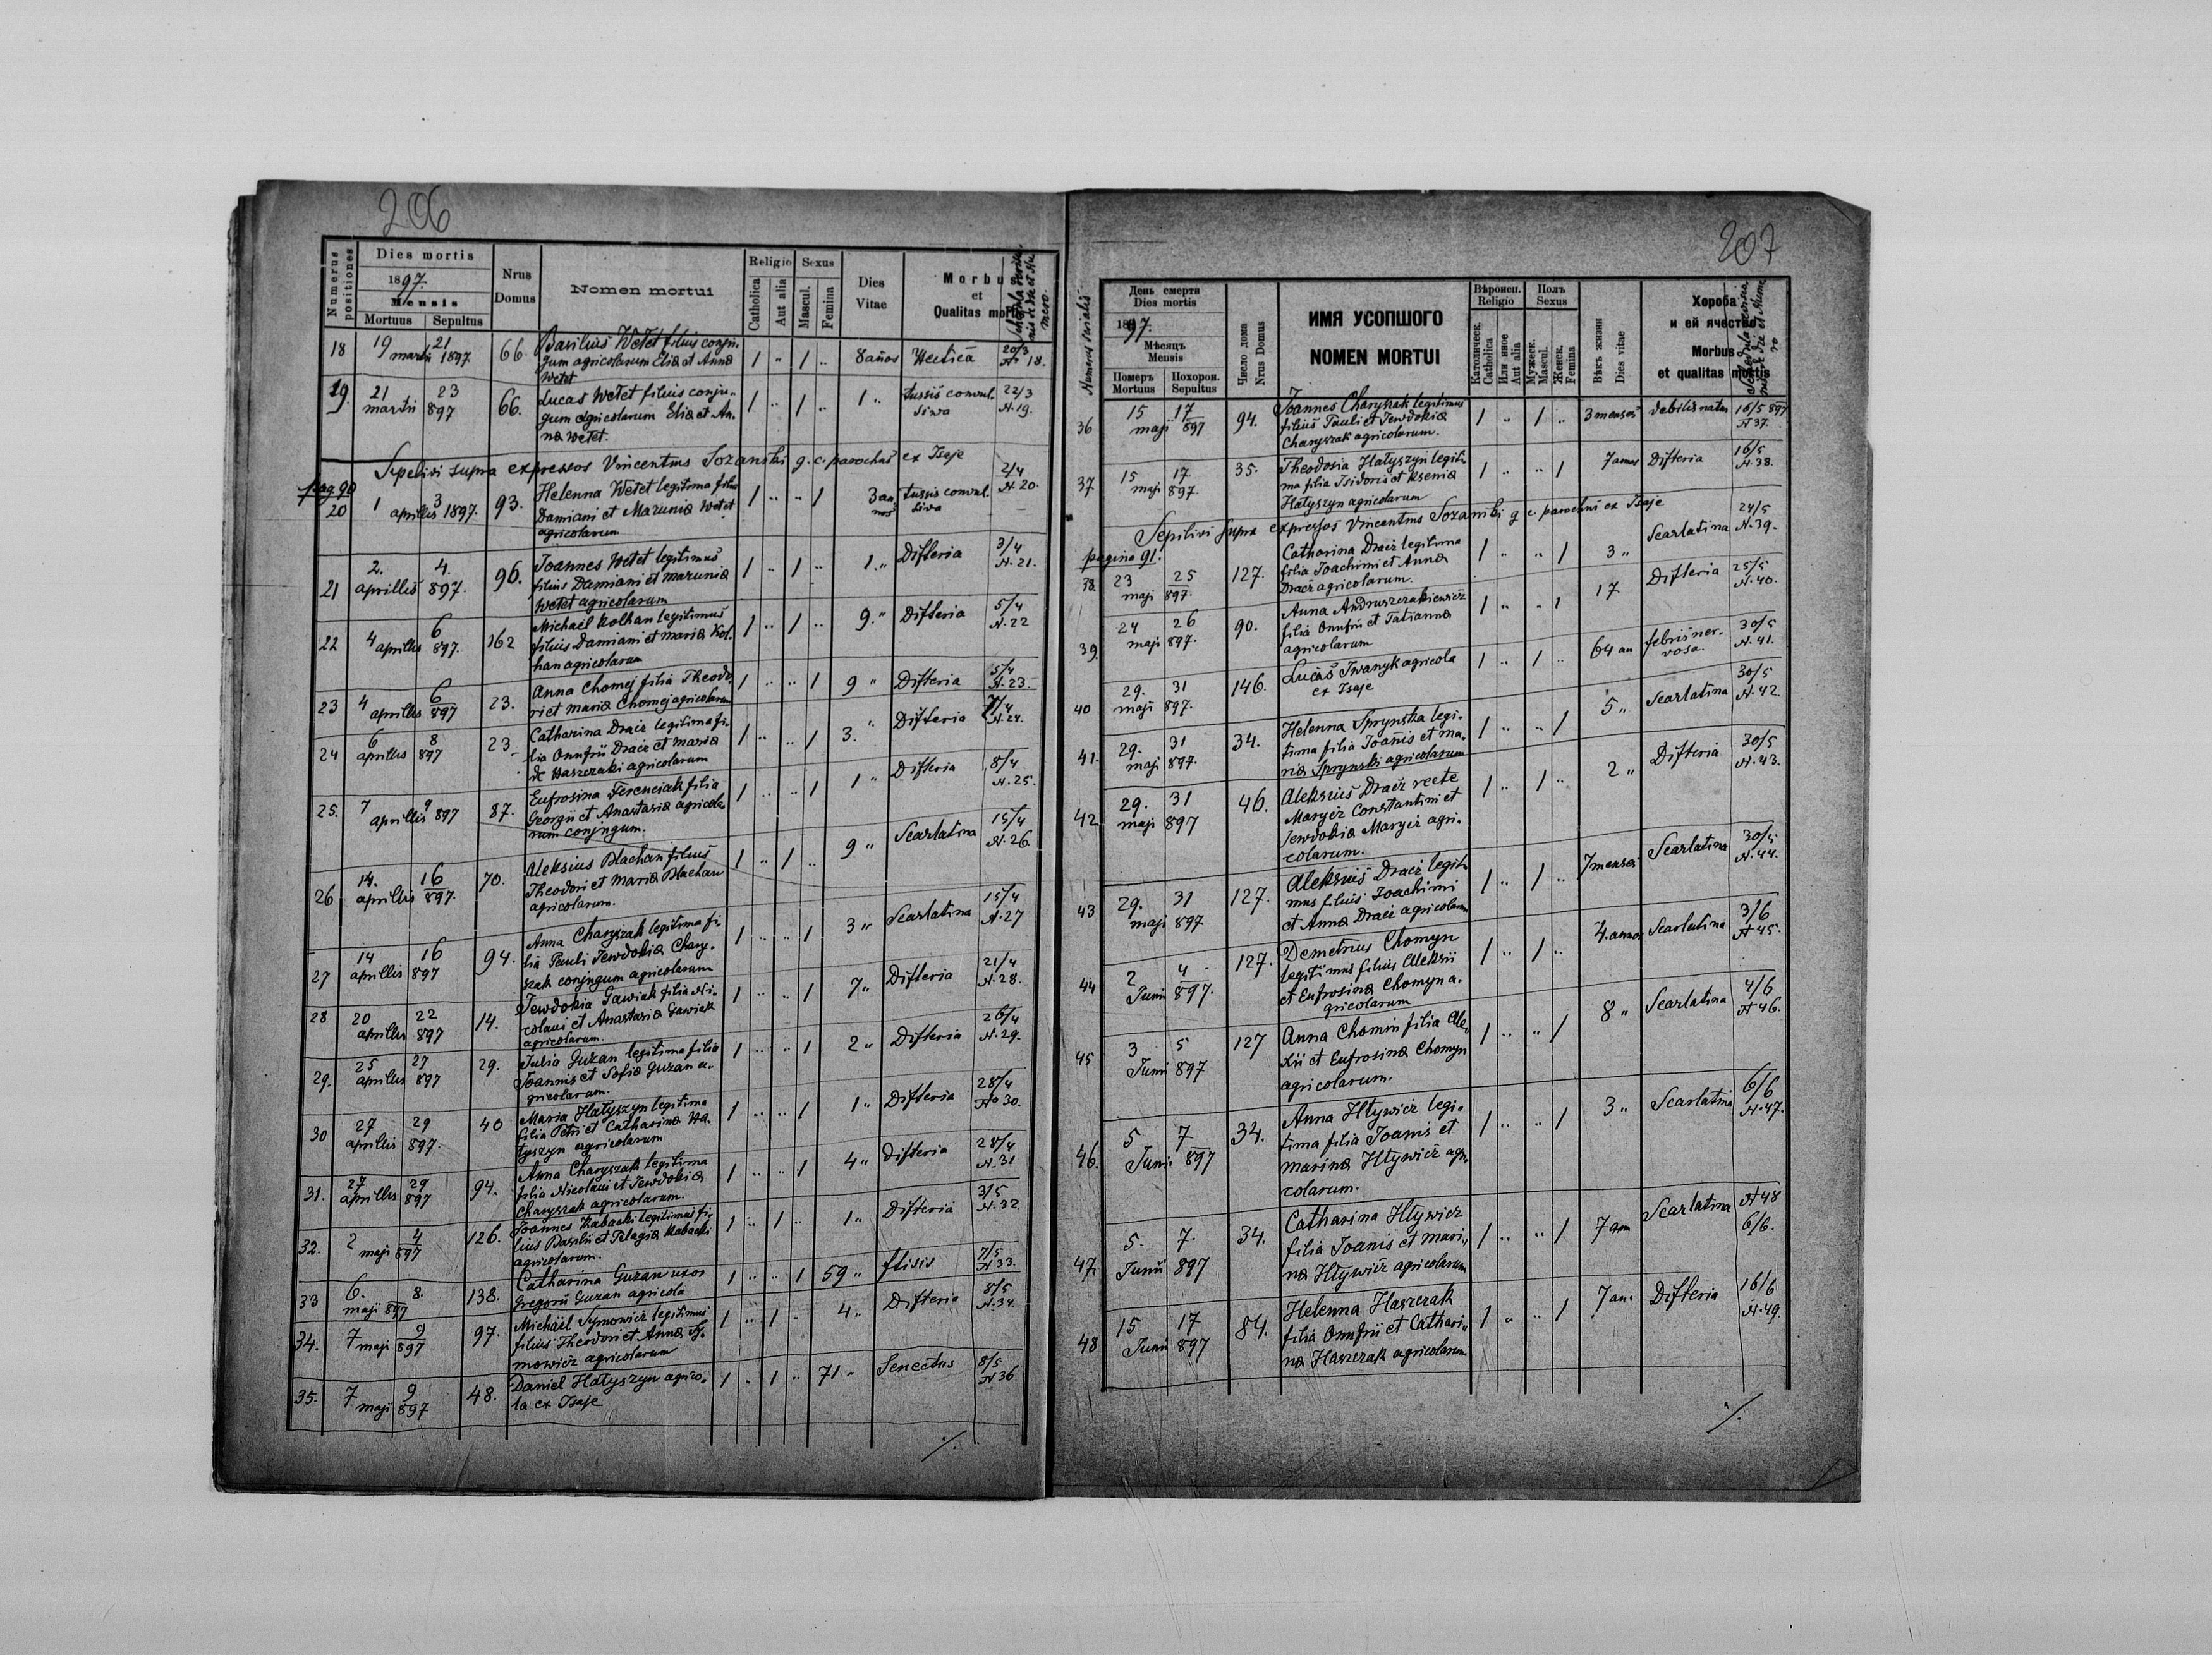 206
Numerus positiones
Dies mortis
1897.
Mensis
Mortuus Sepultus
Nrus Domus
Nomen mortui
Religio
Catholica
Aut alia
Sexus
Mascul.
Femina
Dies Vitae
Morbus et Qualitas mortis
18 19 martii 21 1897 66 Basilius Wetet filius conju-
gum agricolarum Eliæ et Anna
Wetet 1 " 1 " 8 años Hectica 20/3 N 18.
19. 21 martii 23 897 66. Lucas Wetet filius conju-
gum agricolarum Eliæ et An-
na Wetet. 1 " 1 " 1 " tussis convul-
siva 22/3 N. 19.
Sepelivi supra expressos Vincentius Sozanski g. c. parochus ex Isaje
pag 90
20 1 aprilis 3 1897. 93. Helenna Wetet legitima filia
Damiani et Maruniæ Wetet
agricolarum 1 " " 1 3 an
nos tussis convul-
siva 2/4 N. 20.
21 2. aprillis 4. 897. 96. Joannes Wetet legitimus
filius Damiani et Maruniæ
Wetet agricolarum 1 " 1 " 1. " Difteria 3/4 N. 21.
22 4 aprillis 6 897. 162 Michael Kolhan legitimus
filius Damiani et Mariæ Kol-
han agricolarum 1 " 1 " 9. " Difteria 5/4 N. 22
23 4 aprillis 6 897 23. Anna Chomej filia Theodo-
ri et Mariæ Chomej agricolarum 1 " " 1 9 " Difteria 5/4 N. 23.
24 6 aprillis 8 897 23 Catharina Dracz legitima fi-
lia Onufrii Dracz et Mariæ
de Haszczaki agricolarum 1 " " 1 3. " Difteria 7/4 N. 24.
25. 7 aprillis 9 897 87. Eufrosina Ferenciak filia
Georgii et Anastasiæ agricola-
rum conjugum. 1 " " 1 1 " Difteria 8/4 N. 25.
26 14. aprillis 16 897. 70. Aleksius Blachan filius
Theodori et Mariæ Blachan
agricolarum. 1 " 1 " 9 " Scarlatina 15/4 N. 26
27 14 aprillis 16 897 94. Anna Charyszak legitima fi-
lia Pauli Jewdokiæ Chary-
szak conjugum agricolarum 1 " " 1 3 " Scarlatina 15/4 N. 27
28 20 aprillis 22 897 14. Jewdokia Gawiak filia Ni-
colaui et Anastasiæ Gawiak
agricolarum. 1 " " 1 7 " Difteria 21/4 N. 28.
29. 25 aprillis 27 897 29. Julia Guzan legitima filia
Joannis et Sofiæ Guzan a-
gricolarum. 1 " " 1 2 " Difteria 26/4 N. 29.
30 27 aprillis 29 897. 40 Maria Hatyszyn legitima
filia Petri et Catharinæ Ha-
tyszyn agricolarum 1 " " 1 1 " Difteria 28/4 No 30.
31. 27 aprillis 29 897 94. Anna Charyszak legitima
filia Nicolaui et Jewdokiæ
Charyszak agricolarum. 1 " " 1 4 " Difteria 28/4 N. 31
32. 2 maji 4 897 126. Joannes Kabacki legitimus fi-
lius Basilii et Pelagiæ Kabacki
agricolarum. 1 " 1 " 1 " Difteria 3/5 N. 32
33 6. maji 8. 897 138. Catharina Guzan uxor
Gregorii Guzan agricola 1 " " 1 59 " ftisis 7/5 N 33.
34. 7 maji 9 897 97. Michäel Symowicz legitimus
filius Theodori et Annæ Sy-
mowicz agricolarum 1 " 1 " 4 " Difteria 8/5 N. 34.
35. 7 maji 9 897 48. Daniel Hatyszyn agrico-
la ex Isaje 1 " 1 " 71 " Senectus 8/5 N 36
./.
207
Numerus serialis
День смерти
Dies mortis
1897.
Мѣсяцъ
Mensis
Померъ Mortuus
Похорон. Sepultus
Число дома
Nrus Domus
ИМЯ УСОПШОГО
NOMEN MORTUI
Вѣроисп.
Religio
Католическ. Catholica
Или иное Aut alia
Полъ
Sexus
Мужеск. Mascul.
Женск. Femina
Вѣкъ жизни
Dies vitae
Хороба
и ей ячество
Morbus
et qualitas mortis
36 15 maji 17 897 94. Joannes Charyszak legitimus
filius Pauli et Jewdokiæ
Charyszak agricolarum. 1 " 1 " 3 menses debilis natus 16/5 897 N 37.
37 15 maji 17 897. 35. Theodosia Hatyszyn legiti-
ma filia Isidori et Kseniæ
Hatyszyn agricolarum 1 " " 1 7 annos Difteria 16/5 N. 38.
Sepelivi supra expressos Vincentius Sozanski g. c. parochus ex Isaje
pagina 91.
38. 23 maji 25 897. 127. Catharina Dracz legitima
filia Joachimi et Annæ
Dracz agricolarum. 1 " " 1 3 " Scarlatina 24/5 N. 39.
39. 24 maji 26 897. 90. Anna Andruszczakiewicz
filia Onufrii et Tatiannæ
agricolarum 1 " " 1 17 Difteria 25/5 N. 40.
40 29. maji 31 897. 146. Lucas Iwanyk agricola
ex Isaje 1 " 1 " 64 an febris ner-
vosa. 30/5 N. 41.
41. 29. maji 31 897. 34. Helenna Sprynska legi-
tima filia Joannis et Ma-
riæ Sprynski agricolarum 1 " " 1 5 " Scarlatina 30/5 N. 42.
42 29. maji 31 897 46. Aleksius Dracz recte
Marycz Constantini et
Jewdokiæ Marycz agri-
colarum. 1 " 1 " 2 " Difteria 30/5 N. 43.
43 29. maji 31 897 127. Aleksius Dracz legiti-
mus filius Joachimi
et Annæ Dracz agricolarum 1 " 1 " 7 menses Scarlatina 30/5 N. 44.
44 2 Junii 4 897. 127. Demetrius Chomyn
legitimus filius Aleksii
et Eufrosinæ Chomyn a-
gricolarum 1 " 1 " 4. annos Scarlatina 3/6 N 45.
45 3 Junii 5 897 127 Anna Chomin filia Ale-
xii et Eufrosinæ Chomyn
agricolarum. 1 " " 1 8 " Scarlatina 4/6 N 46.
46. 5 Junii 7 897 34. Anna Htywicz legi-
tima filia Joanis et
Marinæ Htywicz agri-
colarum. 1 " " 1 3 " Scarlatina 6/6 N. 47.
47. 5. Junii 7. 897 34. Catharina Htywicz
filia Joanis et Mari-
næ Htywicz agricolarum 1 " " 1 7 an Scarlatina N 48 6/6.
48 15 Junii 17 897 84. Helenna Haszczak
filia Onufrii et Cathari-
næ Haszczak agricolarum 1 " " 1 7 an. Difteria 16/6 N. 49.
./.